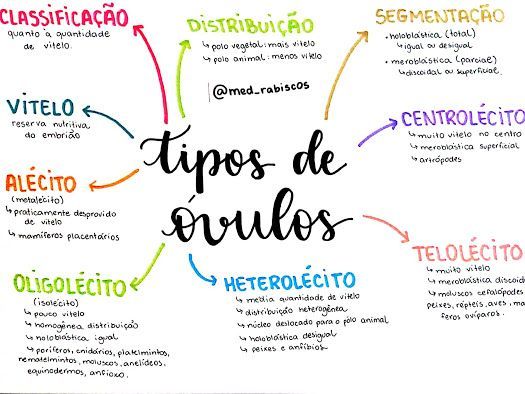 CLASSIFICAÇÃO
quanto à quantidade
de vitelo.
DISTRIBUIÇÃO
↳ polo vegetal: mais vitelo
↳ polo animal: menos vitelo
@med_rabiscos
SEGMENTAÇÃO
• holoblástica (total)
↳ igual ou desigual
• meroblástica (parcial)
↳ discoidal ou superficial
VITELO
reserva nutritiva
do embrião
CENTROLÉCITO
↳ muito vitelo no centro
↳ meroblástica superficial
↳ artrópodes
tipos de
óvulos
ALÉCITO
(metalécito)
↳ praticamente desprovido
de vitelo
↳ mamíferos placentários
TELOLÉCITO
↳ muito vitelo
↳ meroblástica discoid
↳ moluscos cefalópodes
peixes, répteis, aves, ma
feros ovíparos.
OLIGOLÉCITO
(isolécito)
↳ pouco vitelo
↳ homogênea distribuição
↳ holoblástica igual
↳ poríferos, cnidários, platelmintos,
nematelmintos, moluscos, anelídeos,
equinodermos, anfioxo.
HETEROLÉCITO
↳ média quantidade de vitelo
↳ distribuição heterogênea
↳ núcleo deslocado para o pólo animal
↳ holoblástica desigual
↳ peixes e anfíbios